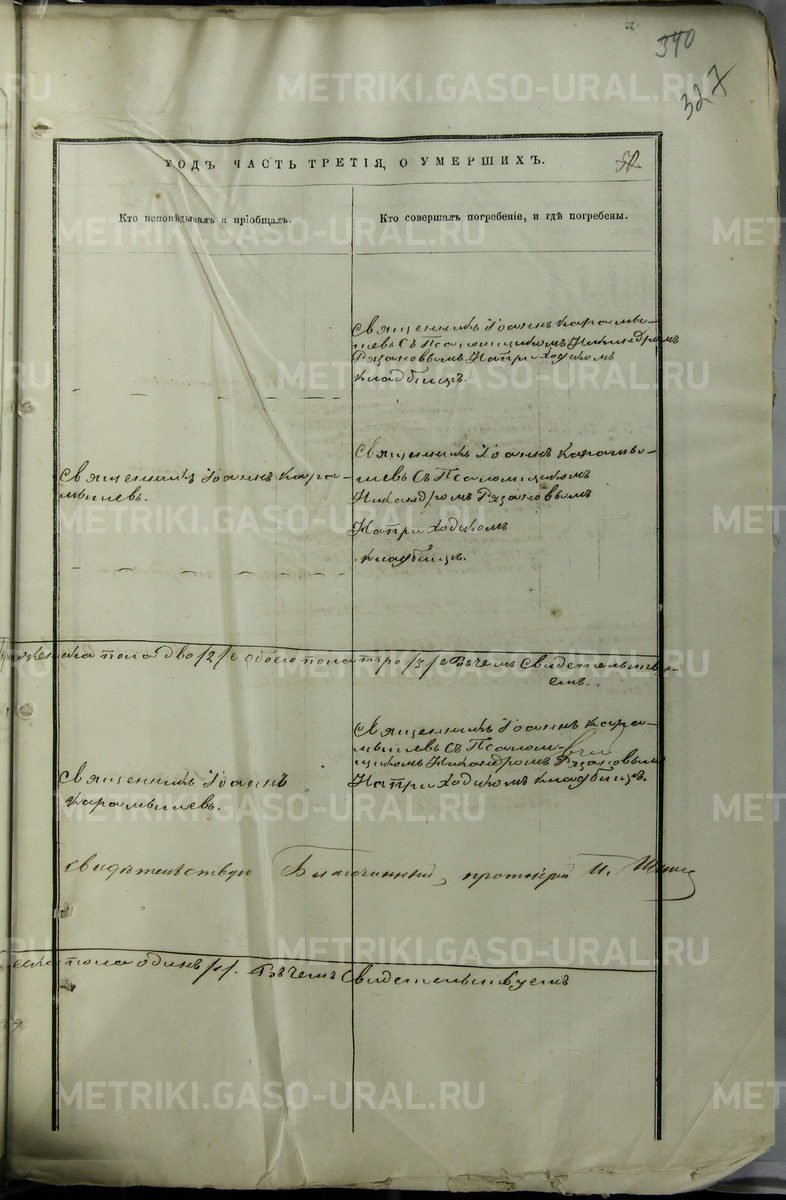 340
327
ГОДЪ ЧАСТЬ ТРЕТІЯ, О УМЕРШИХЪ.
Кто исповѣдывалъ и пріобщалъ.
Кто совершалъ погребеніе, и гдѣ погребены.
Священникъ Іоаннъ Карамы-
шевъ съ Псаломщикомъ Никандромъ
Рязановымъ На приходскомъ
кладбищѣ.
Священникъ Іоаннъ Кара-
мышевъ.
Священникъ Іоаннъ Карамы-
шевъ съ Псаломщикомъ
Никандромъ Рязановымъ
На приходскомъ
кладбищѣ.
женска пола два /2/ обоего пола три /3/ Въ чемъ Свидетельству-
емъ.
Священникъ Іоаннъ
Карамышевъ.
Священникъ Іоаннъ Кара-
мышевъ съ Псалом-
щикомъ Никандромъ Рязановымъ
На приходскомъ кладбищѣ.
свидѣтельствую Благочинный, протоіерей И.
пола одинъ /1/. Въ чемъ Свидетельствуемъ
METRIKI.GASO-URAL.RU